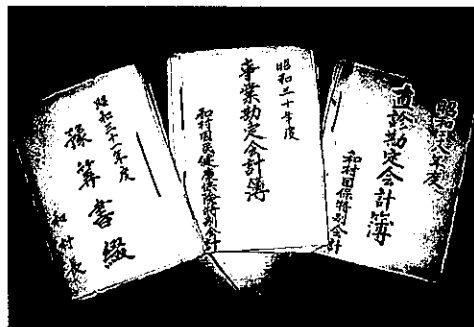 昭和三十一年度
豫算書綴
和村長
昭和三十年度
事業勘定会計簿
和村国民健康保険特別会計
直診勘定会計簿
和村国保特別会計